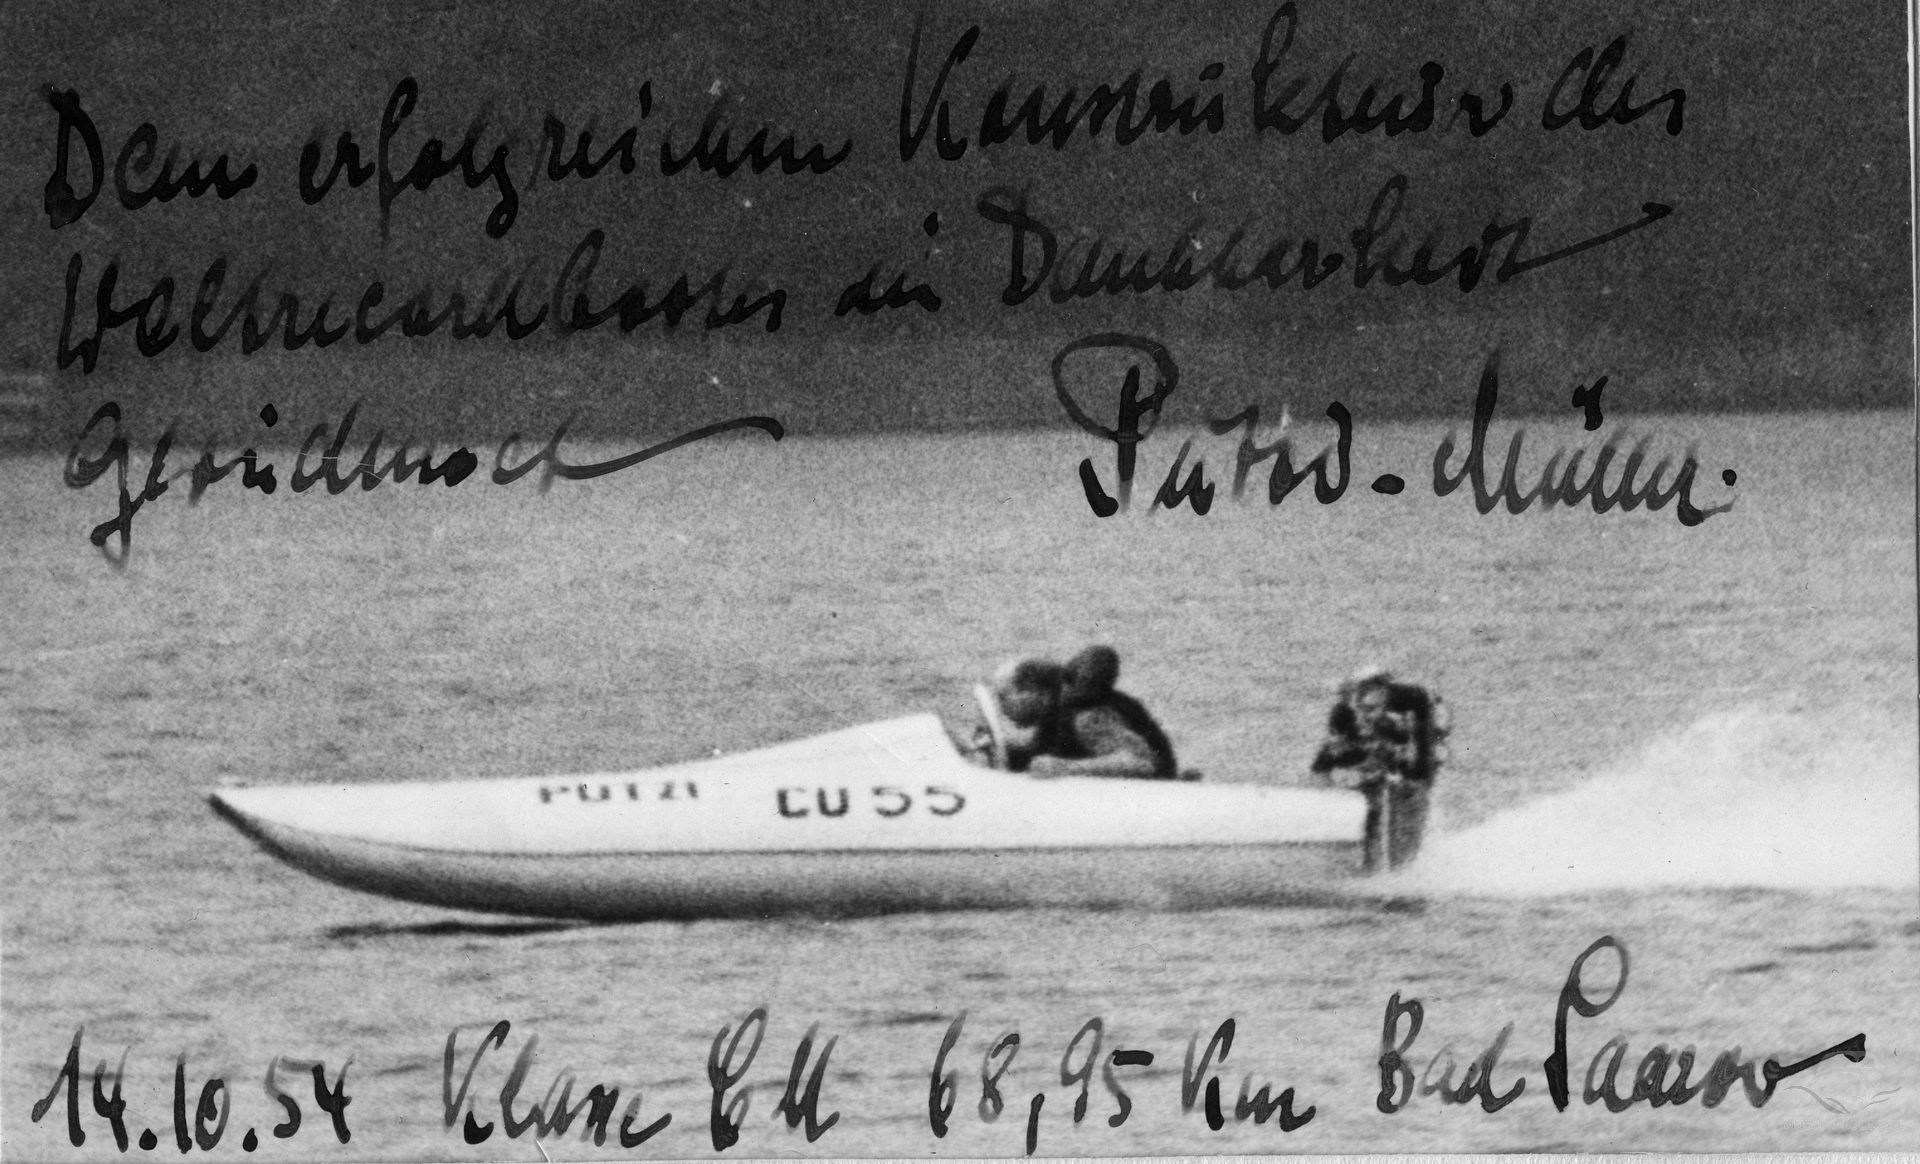 Dem erfolgreichen Konstrukteur des
Weltrecordbootes in Dankbarkeit
Gewidmet Müller.
PUTZI CU 55
14.10.54 Klasse CU 68,95 Km Bad Saarow